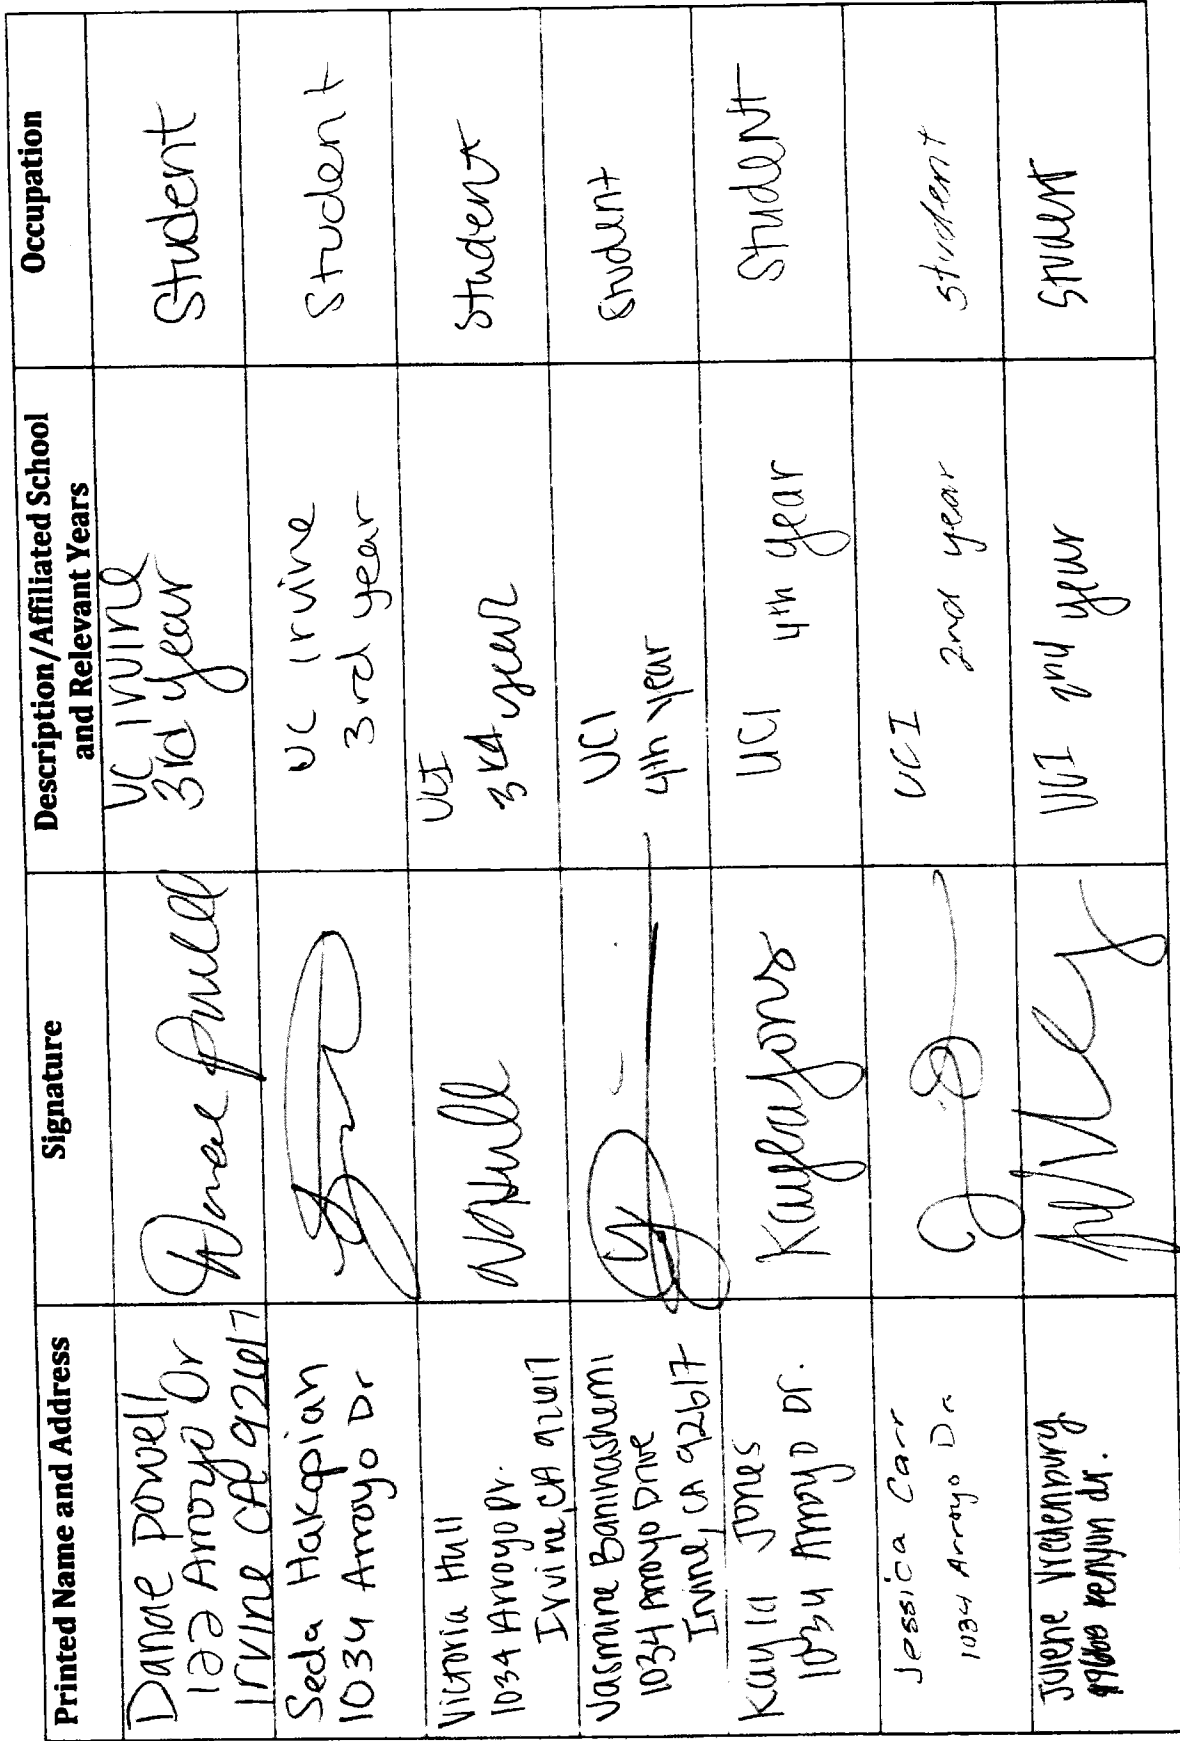 Printed Name and Address Signature Description/Affiliated School and Relevant Years Occupation
Danae Powell
122 Arroyo Dr
Irvine CA 92617
Danae Powell
UC IRVINE
3rd year
Student
Seda Hakopian
1034 Arroyo Dr
UC Irvine
3rd year
Student
Victoria Hull
1034 Arroyo Dr.
Irvine, CA 92617
VHull
UCI
3rd year
Student
Yasmine Banihashemi
1034 Arroyo Drive
Irvine, CA 92617
UCI
4th year
Student
Kayla Jones
1034 Arroyo Dr.
Kayla Jones
UCI 4th year
Student
Jessica Carr
1034 Arroyo Dr.
UCI 2nd year
student
Julene Vredenburg
kenyon dr.
UCI 2nd year
Student